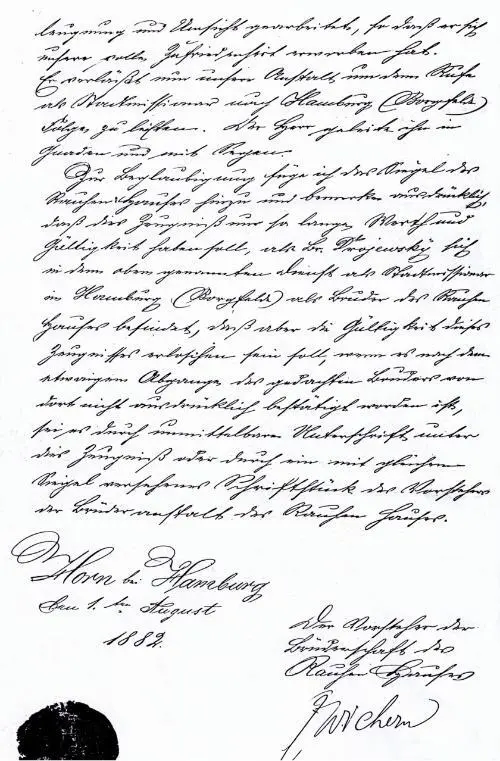 leugnung und Umsicht gearbeitet, so daß er sich
unsere volle Zufriedenheit erworben hat.
Er verläßt nun unsere Anstalt um dem Rufe
als Stadtmissionar nach Hamburg (Borgfelde)
Folge zu leisten. Der Herr geleite ihn in
Gnaden und mit Segen.
Zur Beglaubigung füge ich das Siegel des
Rauhen Hauses hinzu und bemerke ausdrücklich,
daß das Zeugniß nur so lange Werth und
Gültigkeit haben soll, als Br. Trojewsky sich
in dem oben genannten Dienst als Stadtmissionar
in Hamburg (Borgfelde) als Bruder des Rauhen
Hauses befindet, daß aber die Gültigkeit dieses
Zeugnisses erloschen sein soll, wenn es nach dem
etwaigen Abgange des gedachten Bruders von
dort nicht ausdrücklich bestätigt worden ist,
sei es durch unmittelbare Unterschrift unter
dies Zeugniß oder durch ein mit gleichem
Siegel versehenes Schriftstück des Vorstehers
der Brüderanstalt des Rauhen Hauses.
Horn bei Hamburg
den 1. ten August
1882.
Der Vorsteher der
Brüderschaft des
Rauhen Hauses
J Wichern